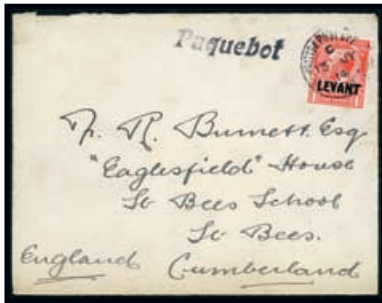 Paquebot
LEVANT
R. Burnett. Esq
"Eaglesfield" House
St Bees School
St Bees.
England Cumberland